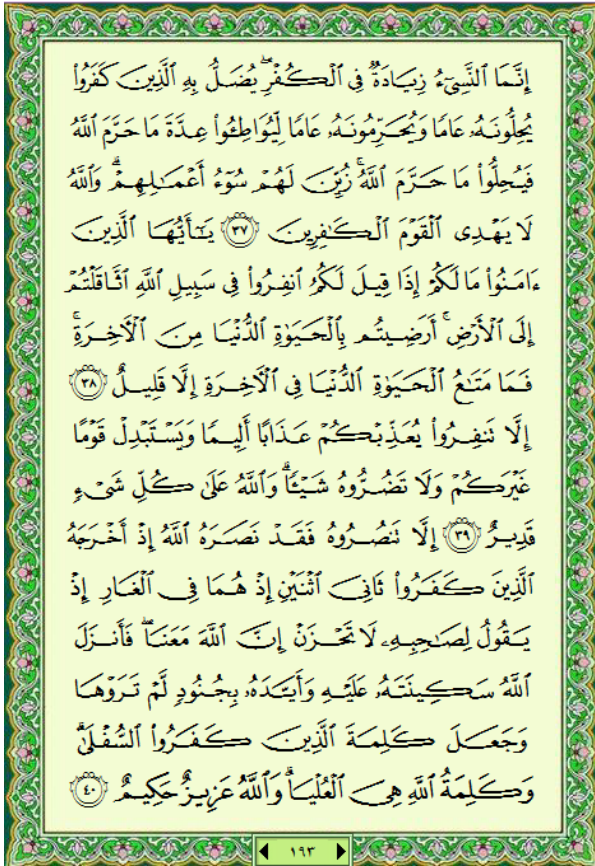 إِنَّمَا ٱلنَّسِيٓءُ زِيَادَةٌ فِى ٱلْكُفْرِ ۖ يُضَلُّ بِهِ ٱلَّذِينَ كَفَرُوا۟
يُحِلُّونَهُۥ عَامًا وَيُحَرِّمُونَهُۥ عَامًا لِّيُوَاطِـُٔوا۟ عِدَّةَ مَا حَرَّمَ ٱللَّهُ
فَيُحِلُّوا۟ مَا حَرَّمَ ٱللَّهُ ۚ زُيِّنَ لَهُمْ سُوٓءُ أَعْمَـٰلِهِمْ ۗ وَٱللَّهُ
لَا يَهْدِى ٱلْقَوْمَ ٱلْكَـٰفِرِينَ ٣٧ يَـٰٓأَيُّهَا ٱلَّذِينَ
ءَامَنُوا۟ مَا لَكُمْ إِذَا قِيلَ لَكُمُ ٱنفِرُوا۟ فِى سَبِيلِ ٱللَّهِ ٱثَّاقَلْتُمْ
إِلَى ٱلْأَرْضِ ۚ أَرَضِيتُم بِٱلْحَيَوٰةِ ٱلدُّنْيَا مِنَ ٱلْـَٔاخِرَةِ ۚ
فَمَا مَتَـٰعُ ٱلْحَيَوٰةِ ٱلدُّنْيَا فِى ٱلْـَٔاخِرَةِ إِلَّا قَلِيلٌ ٣٨
إِلَّا تَنفِرُوا۟ يُعَذِّبْكُمْ عَذَابًا أَلِيمًا وَيَسْتَبْدِلْ قَوْمًا
غَيْرَكُمْ وَلَا تَضُرُّوهُ شَيْـًٔا ۗ وَٱللَّهُ عَلَىٰ كُلِّ شَىْءٍ
قَدِيرٌ ٣٩ إِلَّا تَنصُرُوهُ فَقَدْ نَصَرَهُ ٱللَّهُ إِذْ أَخْرَجَهُ
ٱلَّذِينَ كَفَرُوا۟ ثَانِىَ ٱثْنَيْنِ إِذْ هُمَا فِى ٱلْغَارِ إِذْ
يَقُولُ لِصَـٰحِبِهِۦ لَا تَحْزَنْ إِنَّ ٱللَّهَ مَعَنَا ۖ فَأَنزَلَ
ٱللَّهُ سَكِينَتَهُۥ عَلَيْهِ وَأَيَّدَهُۥ بِجُنُودٍ لَّمْ تَرَوْهَا
وَجَعَلَ كَلِمَةَ ٱلَّذِينَ كَفَرُوا۟ ٱلسُّفْلَىٰ ۗ
وَكَلِمَةُ ٱللَّهِ هِىَ ٱلْعُلْيَا ۗ وَٱللَّهُ عَزِيزٌ حَكِيمٌ ٤٠
١٩٣